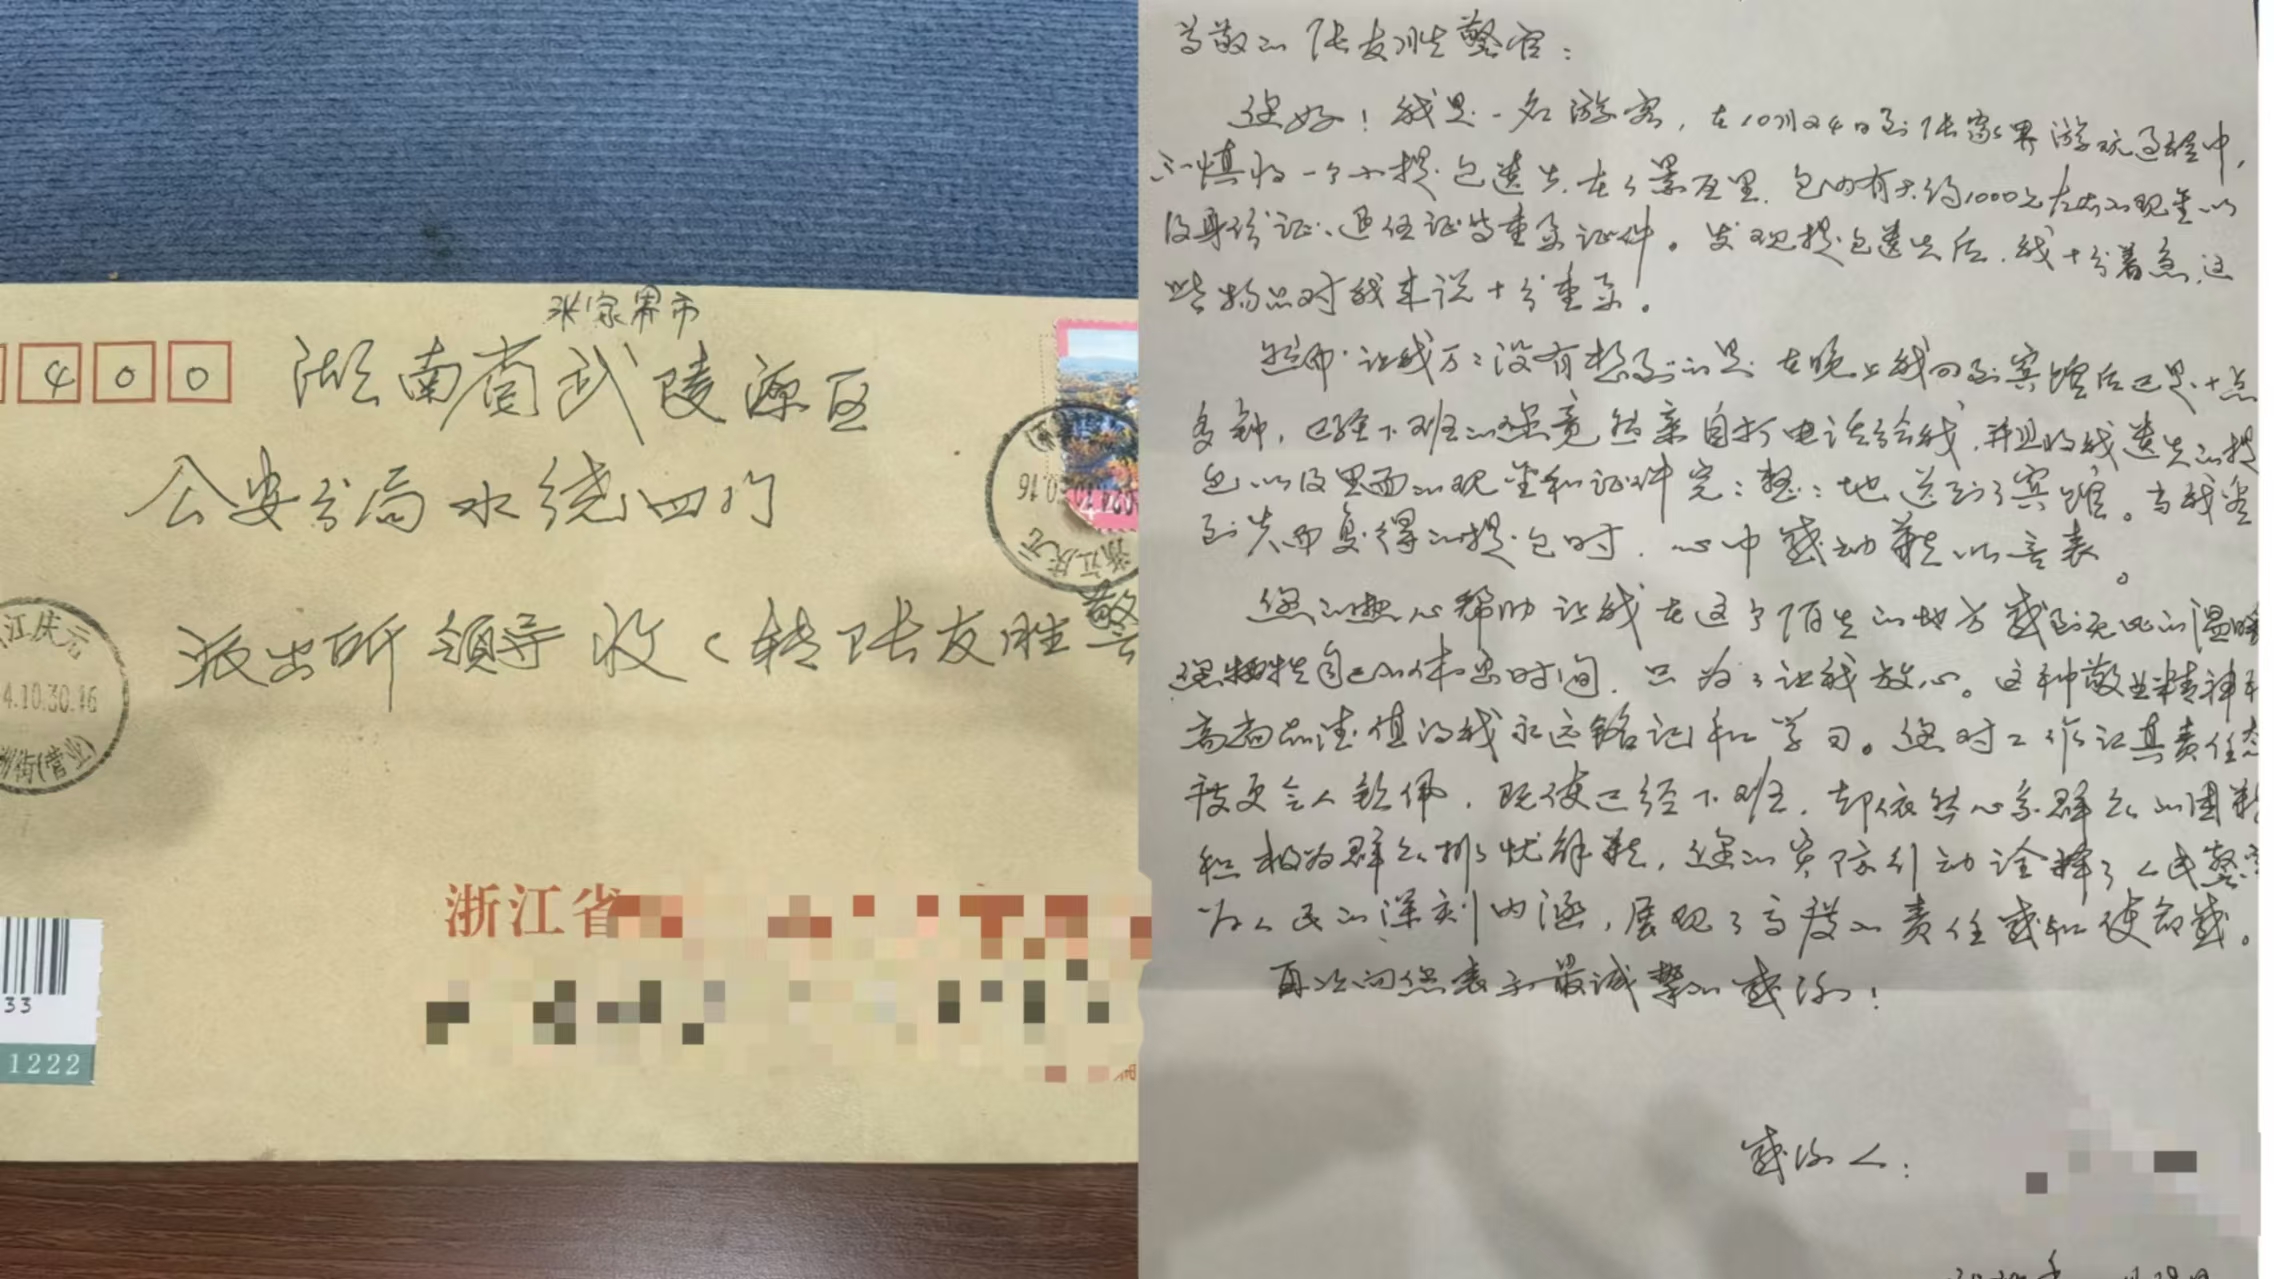 张家界市
400 湖南省武陵源区
公安分局水绕四门
派出所领导收（转张友胜警
江庆元
4.10.30.16
洲街(营业)
0.16
浙江庆元
浙江省
33
1222
尊敬的张友胜警官：
您好！我是一名游客，在10月24日到张家界游玩过程中，
不慎将一个小提包遗失在了景区里，包内有大约1000元左右的现金以
及身份证、退伍证等重要证件。发现提包遗失后，我十分着急，这
些物品对我来说十分重要。
然而，让我万万没有想到的是，在晚上我回到宾馆后已是十点
多钟，已经下班的您竟然亲自打电话给我，并且将我遗失的提
包以及里面的现金和证件完完整整地送到了宾馆。当我拿
到失而复得的提包时，心中感动难以言表。
您的热心帮助让我在这个陌生的地方感到无比的温暖
您牺牲自己的休息时间，只为了让我放心。这种敬业精神和
高尚品德值得我永远铭记和学习。您对工作认真责任态
度更令人钦佩，既使已经下班，却依然心系群众的困难
积极为群众排忧解难，您的实际行动诠释了人民警官
为人民的深刻内涵，展现了高度的责任感和使命感。
再次向您表示最诚挚的感谢！
感谢人：